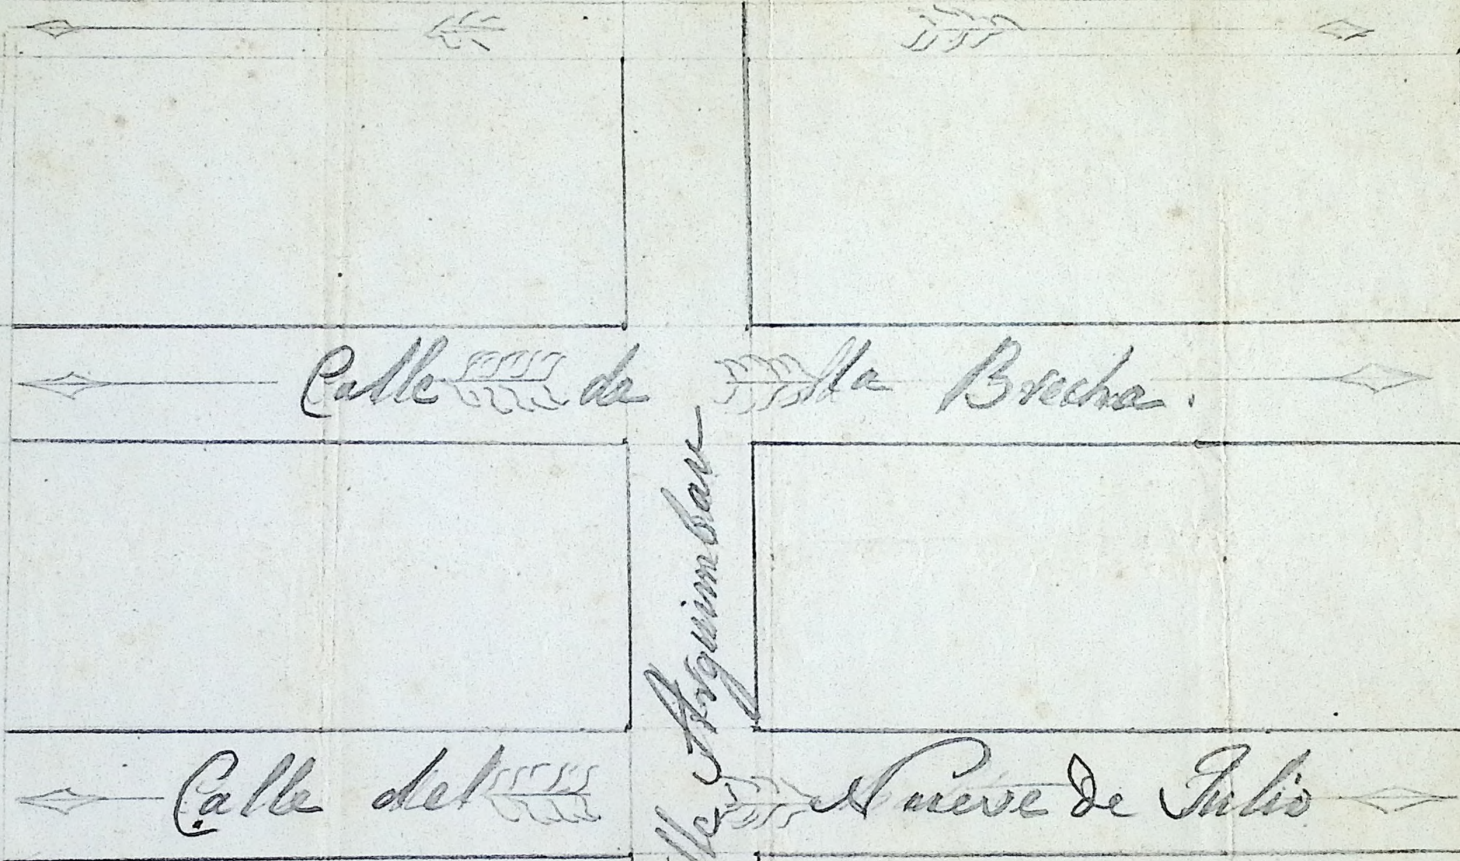 Calle de la Brecha.
Arquimbau
Calle del Nueve de Julio